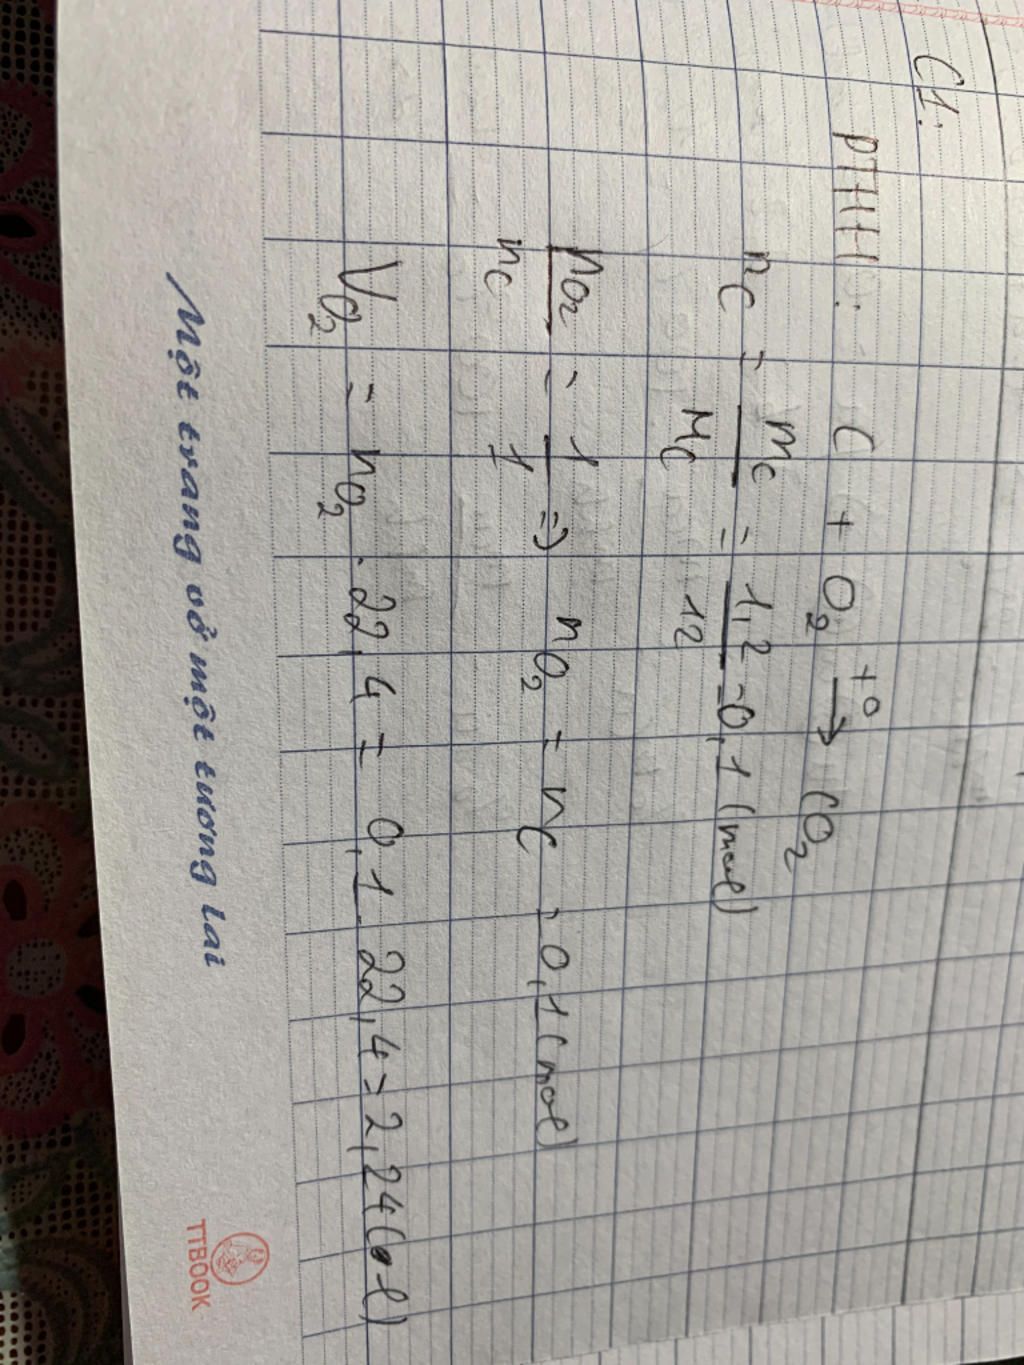 C1:
PTHH: C + O₂ →(t°) CO₂
n_C = m_C / M_C = 1,2 / 12 = 0,1 (mol)
n_O₂ / n_C = 1 / 1 => n_O₂ = n_C = 0,1 (mol)
V_O₂ = n_O₂ . 22,4 = 0,1 . 22,4 = 2,24 (l)
Một trang vở một tương lai
TTBOOK